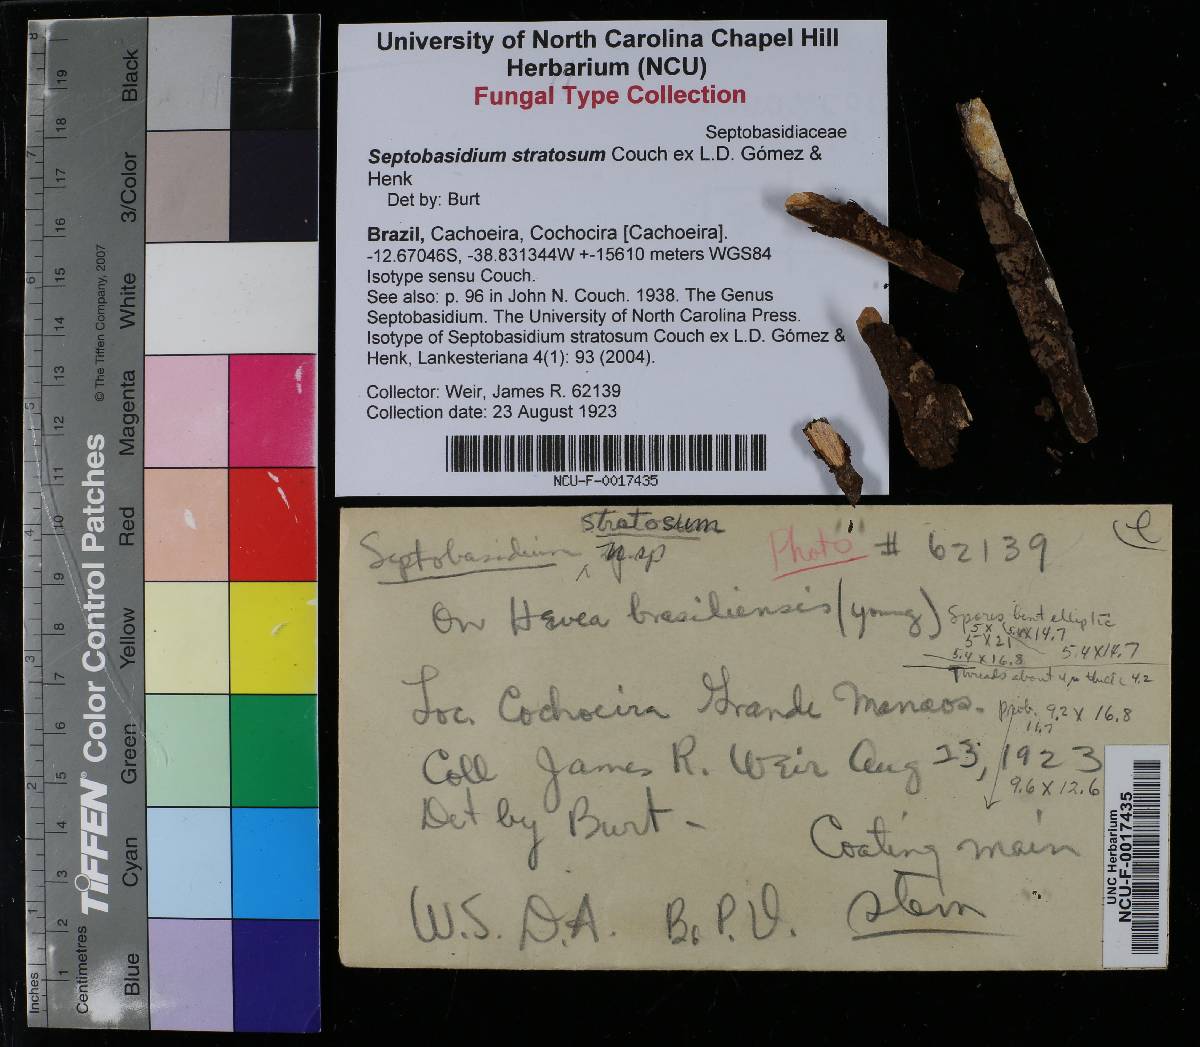 University of North Carolina Chapel Hill
Herbarium (NCU)
Fungal Type Collection
Septobasidiaceae
Septobasidium stratosum Couch ex L.D. Gómez &
Henk
Det by: Burt
Brazil, Cachoeira, Cochocira [Cachoeira].
-12.67046S, -38.831344W +-15610 meters WGS84
Isotype sensu Couch.
See also: p. 96 in John N. Couch. 1938. The Genus
Septobasidium. The University of North Carolina Press.
Isotype of Septobasidium stratosum Couch ex L.D. Gómez &
Henk, Lankesteriana 4(1): 93 (2004).
Collector: Weir, James R. 62139
Collection date: 23 August 1923
NCU-F-0017435
stratosum
Septobasidium n.sp Photo # 62139
On Hevea brasiliensis (young)
Spores bent elliptic
5 X 14.7
5 X 21
5.4 X 14.7
5.4 X 16.8
Threads about 4µ thick 4.2
Loc. Cochoeira Grande Manaos.
prob. 9.2 X 16.8
11.7
Coll James R. Weir Aug 23, 1923
9.6 X 12.6
Det by Burt-
Coating main
stem
W.S. D.A. B.P.V.
UNC Herbarium
NCU-F-0017435
TIFFEN® Color Control Patches
© The Tiffen Company, 2007
Inches
1 2 3 4 5 6 7 8
Centimetres
1 2 3 4 5 6 7 8 9 10 11 12 13 14 15 16 17 18 19
Blue
Cyan
Green
Yellow
Red
Magenta
White
3/Color
Black